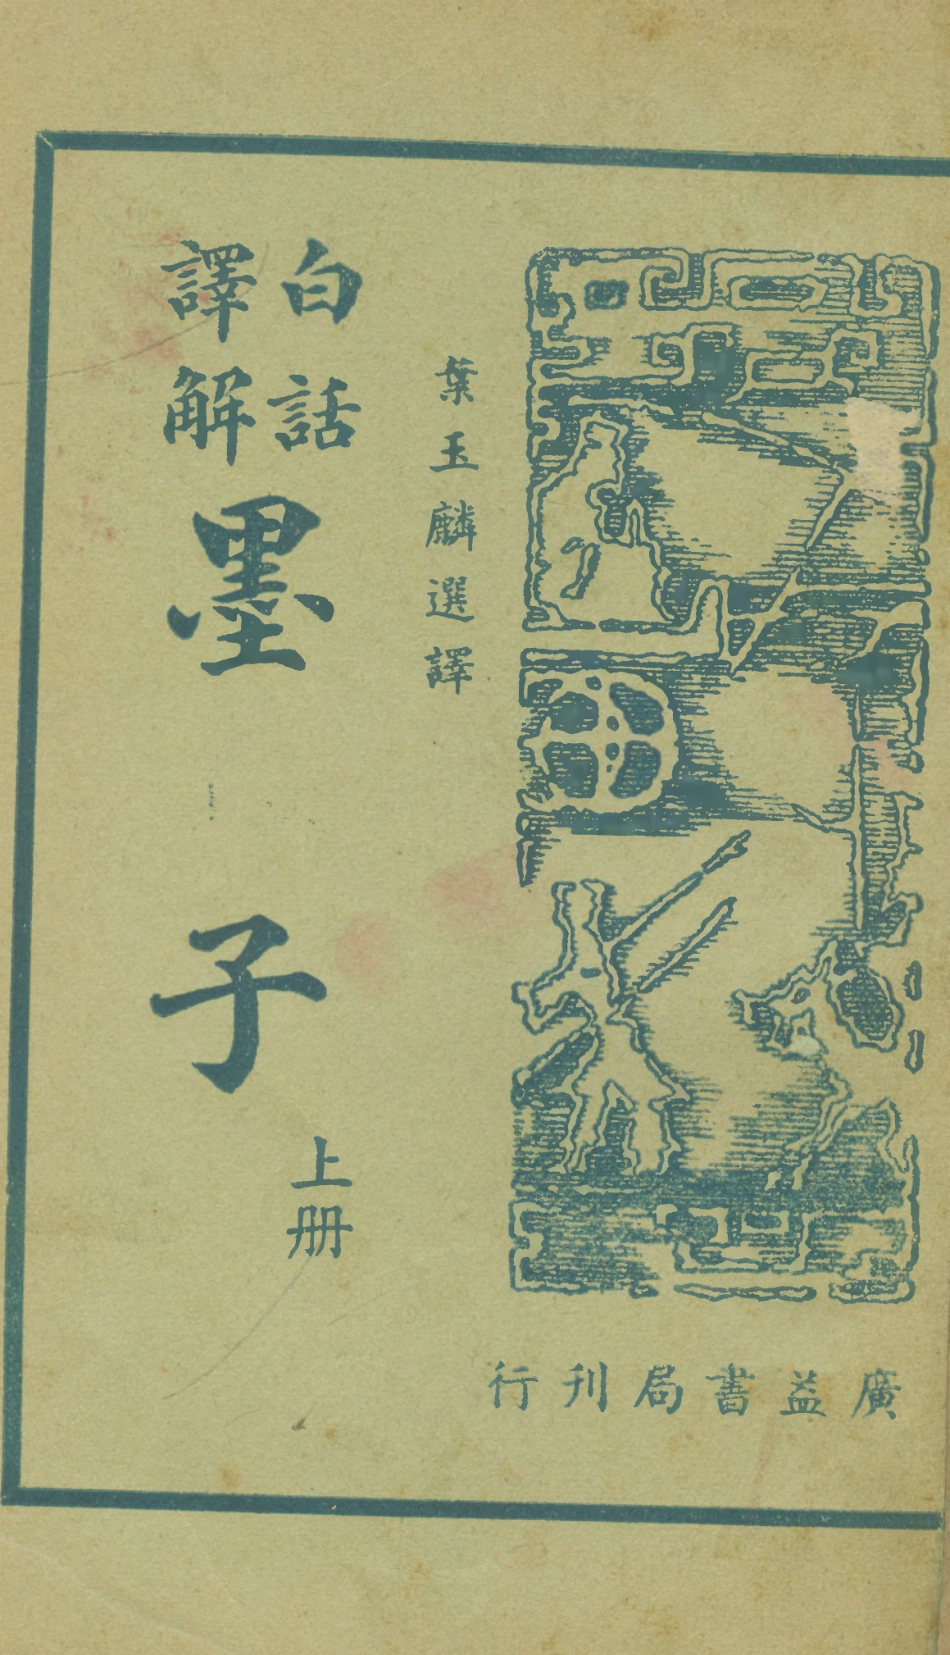 葉玉麟選譯
白話
譯解
墨子
上册
廣益書局刊行